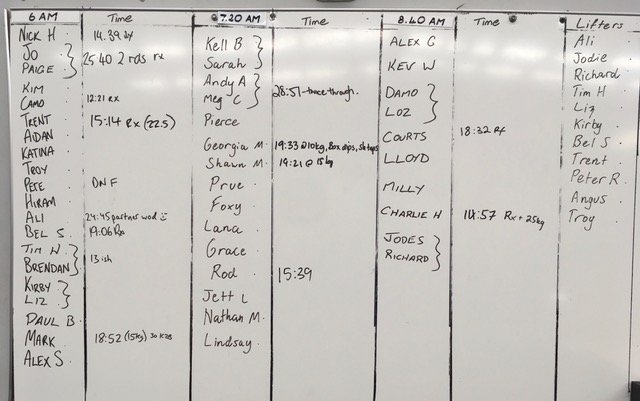 6 AM Time 7.20 AM Time 8.40 AM Time Lifters
NICK H 14.39 rx Kell B ALEX G Ali
JO Sarah Jodie
PAIGE 25:40 2 rds rx Andy A KEV W Richard
KIM Meg C 28:57 - twice through. DAMO Tim H
CAMO 12:21 RX LOZ Liz
TRENT 15:14 Rx (22.5) Pierce Kirby
AIDAN COURTS 18:32 Rx Bel S
KATINA Georgia M 19:33 @10kg, Box dips, sit ups LLOYD Trent
TROY Shawn M 19:21 @ 15kg Peter R
PETE DNF Prue MILLY Angus
HIRAM Foxy Troy
ALI 24:45 partner wod CHARLIE H 14:57 Rx + 25kg
BEL S 19:06 Rx Lana JODES
TIM W Grace RICHARD
BRENDAN 13.ish Rod 15:39
KIRBY
LIZ Jett L
PAUL B Nathan M
MARK 18:52 (15kg) Lindsay
ALEX S